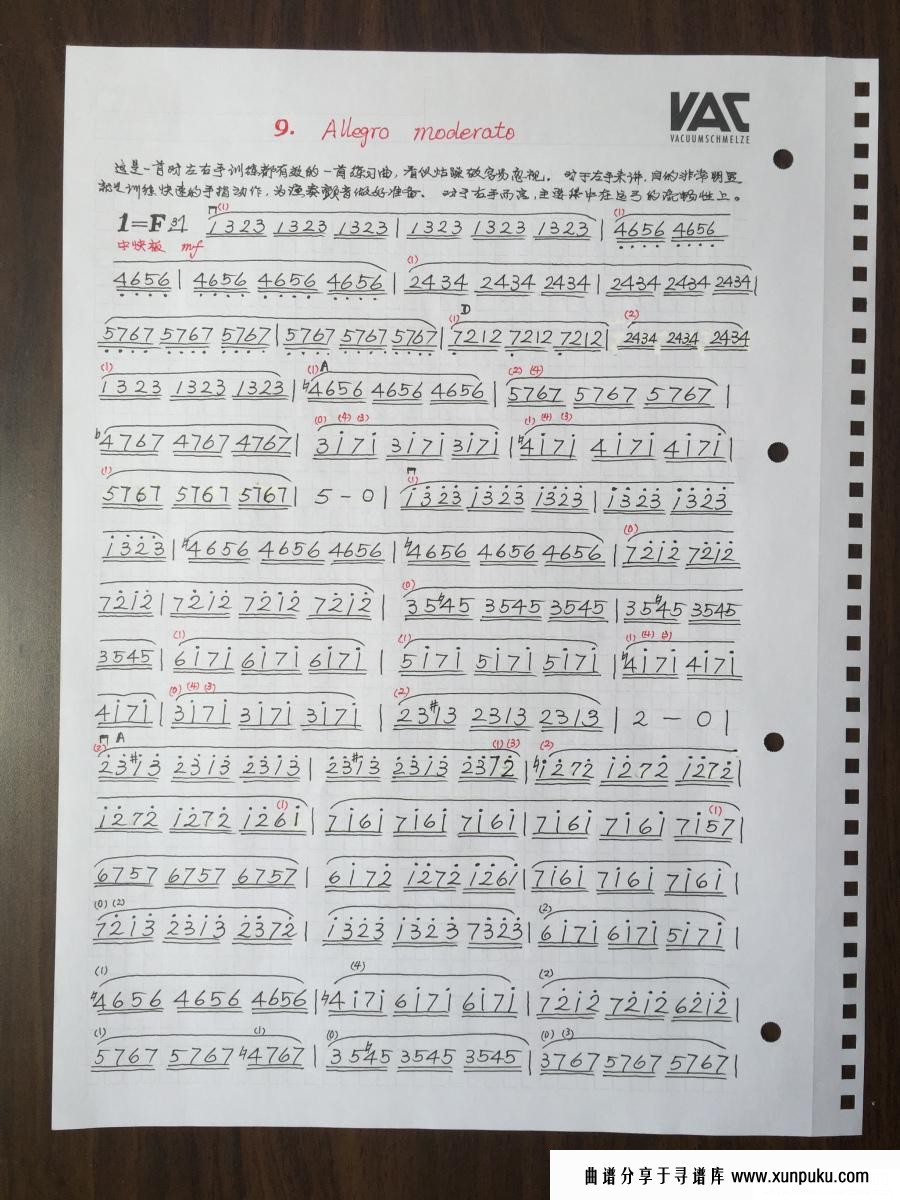 VAC
VACUUMSCHMELZE
9. Allegro moderato
这是一首对左右手训练都有效的一首练习曲，看似枯燥极容易忽视。对于左手来讲，目的非常明显
就是训练快速的手指动作，为演奏颤音做好准备。对于右手而言，主要集中在运弓的流畅性上。
1=F 3/4 (1) 1323 1323 1323 | 1323 1323 1323 | (1) 4656 4656
中快板 mf
4656 | 4656 4656 4656 | (1) 2434 2434 2434 | 2434 2434 2434 |
5767 5767 5767 | 5767 5767 5767 | (1) D 7212 7212 7212 | (2) 2434 2434 2434
(1) 1323 1323 1323 | (1) A ♮4656 4656 4656 | (2) (4) 5767 5767 5767 |
♭4767 4767 4767 | (0) (4) (3) 3i7i 3i7i 3i7i | (1) (4) (3) ♮4i7i 4i7i 4i7i |
(1) 5767 5767 5767 | 5 - 0 | (1) i323 i323 i323 | i323 i323
i323 | ♮4656 4656 4656 | ♮4656 4656 4656 | (0) 72i2 72i2
72i2 | 72i2 72i2 72i2 | (0) 35♮45 3545 3545 | 35♮45 3545
3545 | (1) 6i7i 6i7i 6i7i | (1) 5i7i 5i7i 5i7i | (1) (4) (3) ♮4i7i 4i7i
4i7i | (0) (4) (3) 3i7i 3i7i 3i7i | (2) 23#13 2313 2313 | 2 - 0 |
(2) A 23#i3 23i3 23i3 | 23#i3 23i3 (1) (3) 2372 | (2) ♮i272 i272 i272 |
i272 i272 (1) i26i | 7i6i 7i6i 7i6i | 7i6i 7i6i (1) 7i57 |
6757 6757 6757 | 6i72 i272 i26i | 7i6i 7i6i 7i6i |
(0) (2) 72i3 23i3 2372 | i323 i323 7323 | (2) 6i7i 6i7i 5i7i |
(1) ♮4656 4656 4656 | (4) ♮4i7i 6i7i 6i7i | (2) 72i2 72i2 62i2 |
(1) 5767 5767 (1) ♮4767 | (0) 35♮45 3545 3545 | (0) (3) 3767 5767 5767 |
曲谱分享于寻谱库 www.xunpuku.com